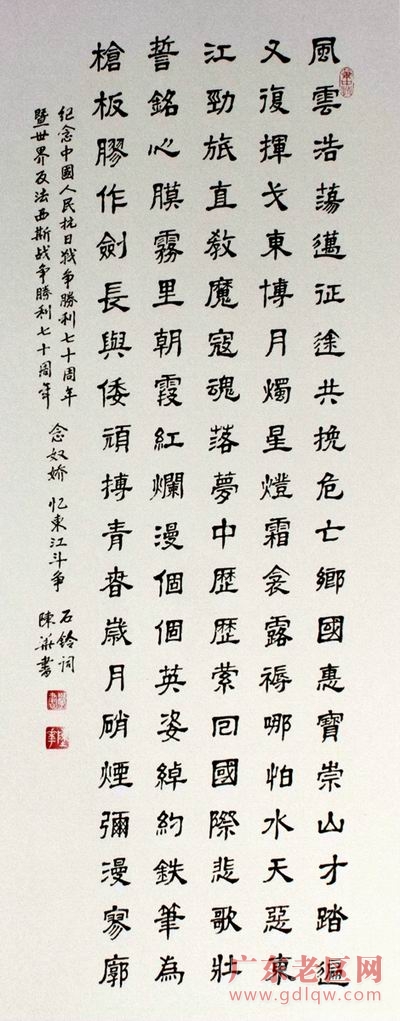 風雲浩蕩邁征途共挽危亡鄉國惠寶崇山才踏遍
又復揮戈東博月燭星燈霜衾露褥哪怕水天惡東
江勁旅直教魔寇魂落夢中歷歷縈回國際悲歌壯
誓銘心膜霧里朝霞紅爛漫個個英姿綽約鉄筆為
槍板膠作劍長與倭頑搏青春歲月硝煙彌漫寥廓
纪念中國人民抗日戰争勝利七十周年
暨世界反法西斯战争勝利七十周年
念奴嬌 忆東江斗争 石鈴词
陳華書
广东老区网
www.gdlqw.com